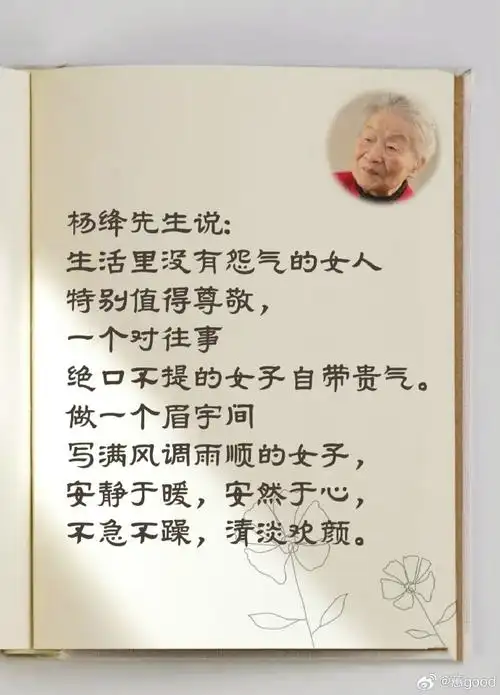 杨绛先生说:
生活里没有怨气的女人
特别值得尊敬，
一个对往事
绝口不提的女子自带贵气。
做一个眉宇间
写满风调雨顺的女子，
安静于暖，安然于心，
不急不躁，清淡欢颜。